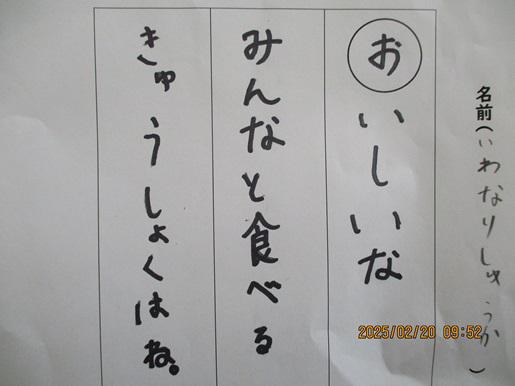 名前(いわなりしゅうか)
おいしいな
みんなと食べる
きゅうしょくはね。
2025/02/20 09:52